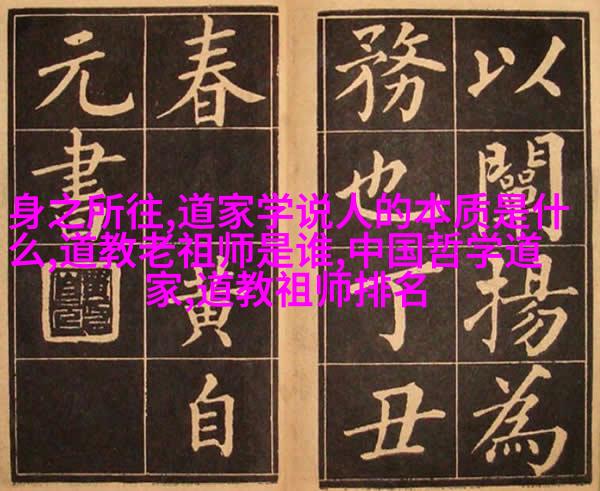 以闡揚為
務也丁丑
春黃自
元書
身之所往,道家学说人的本质是什
么,道教老祖师是谁,中国哲学道
家,道教祖师排名